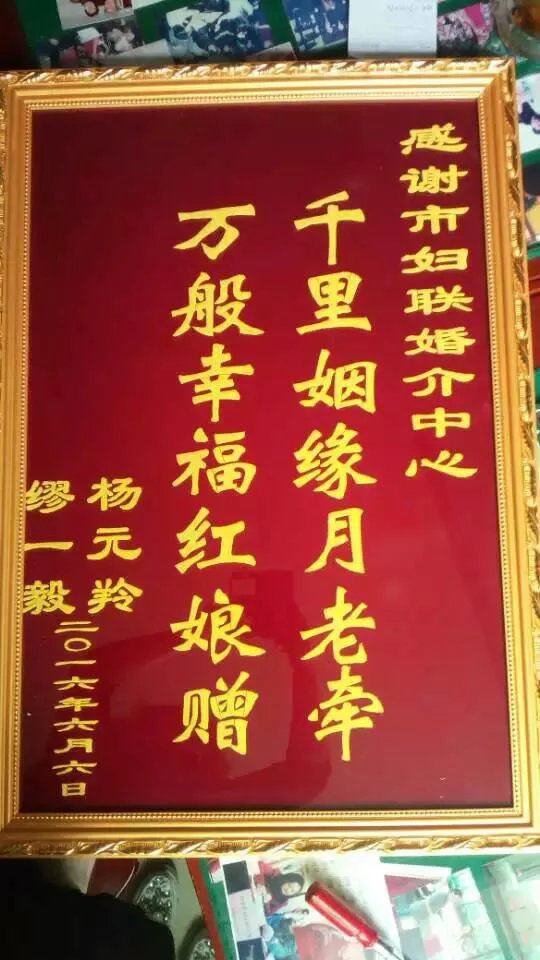 感谢市妇联婚介中心
千里姻缘月老牵
万般幸福红娘赠
杨元羚
缪一毅
二〇一六年六月六日